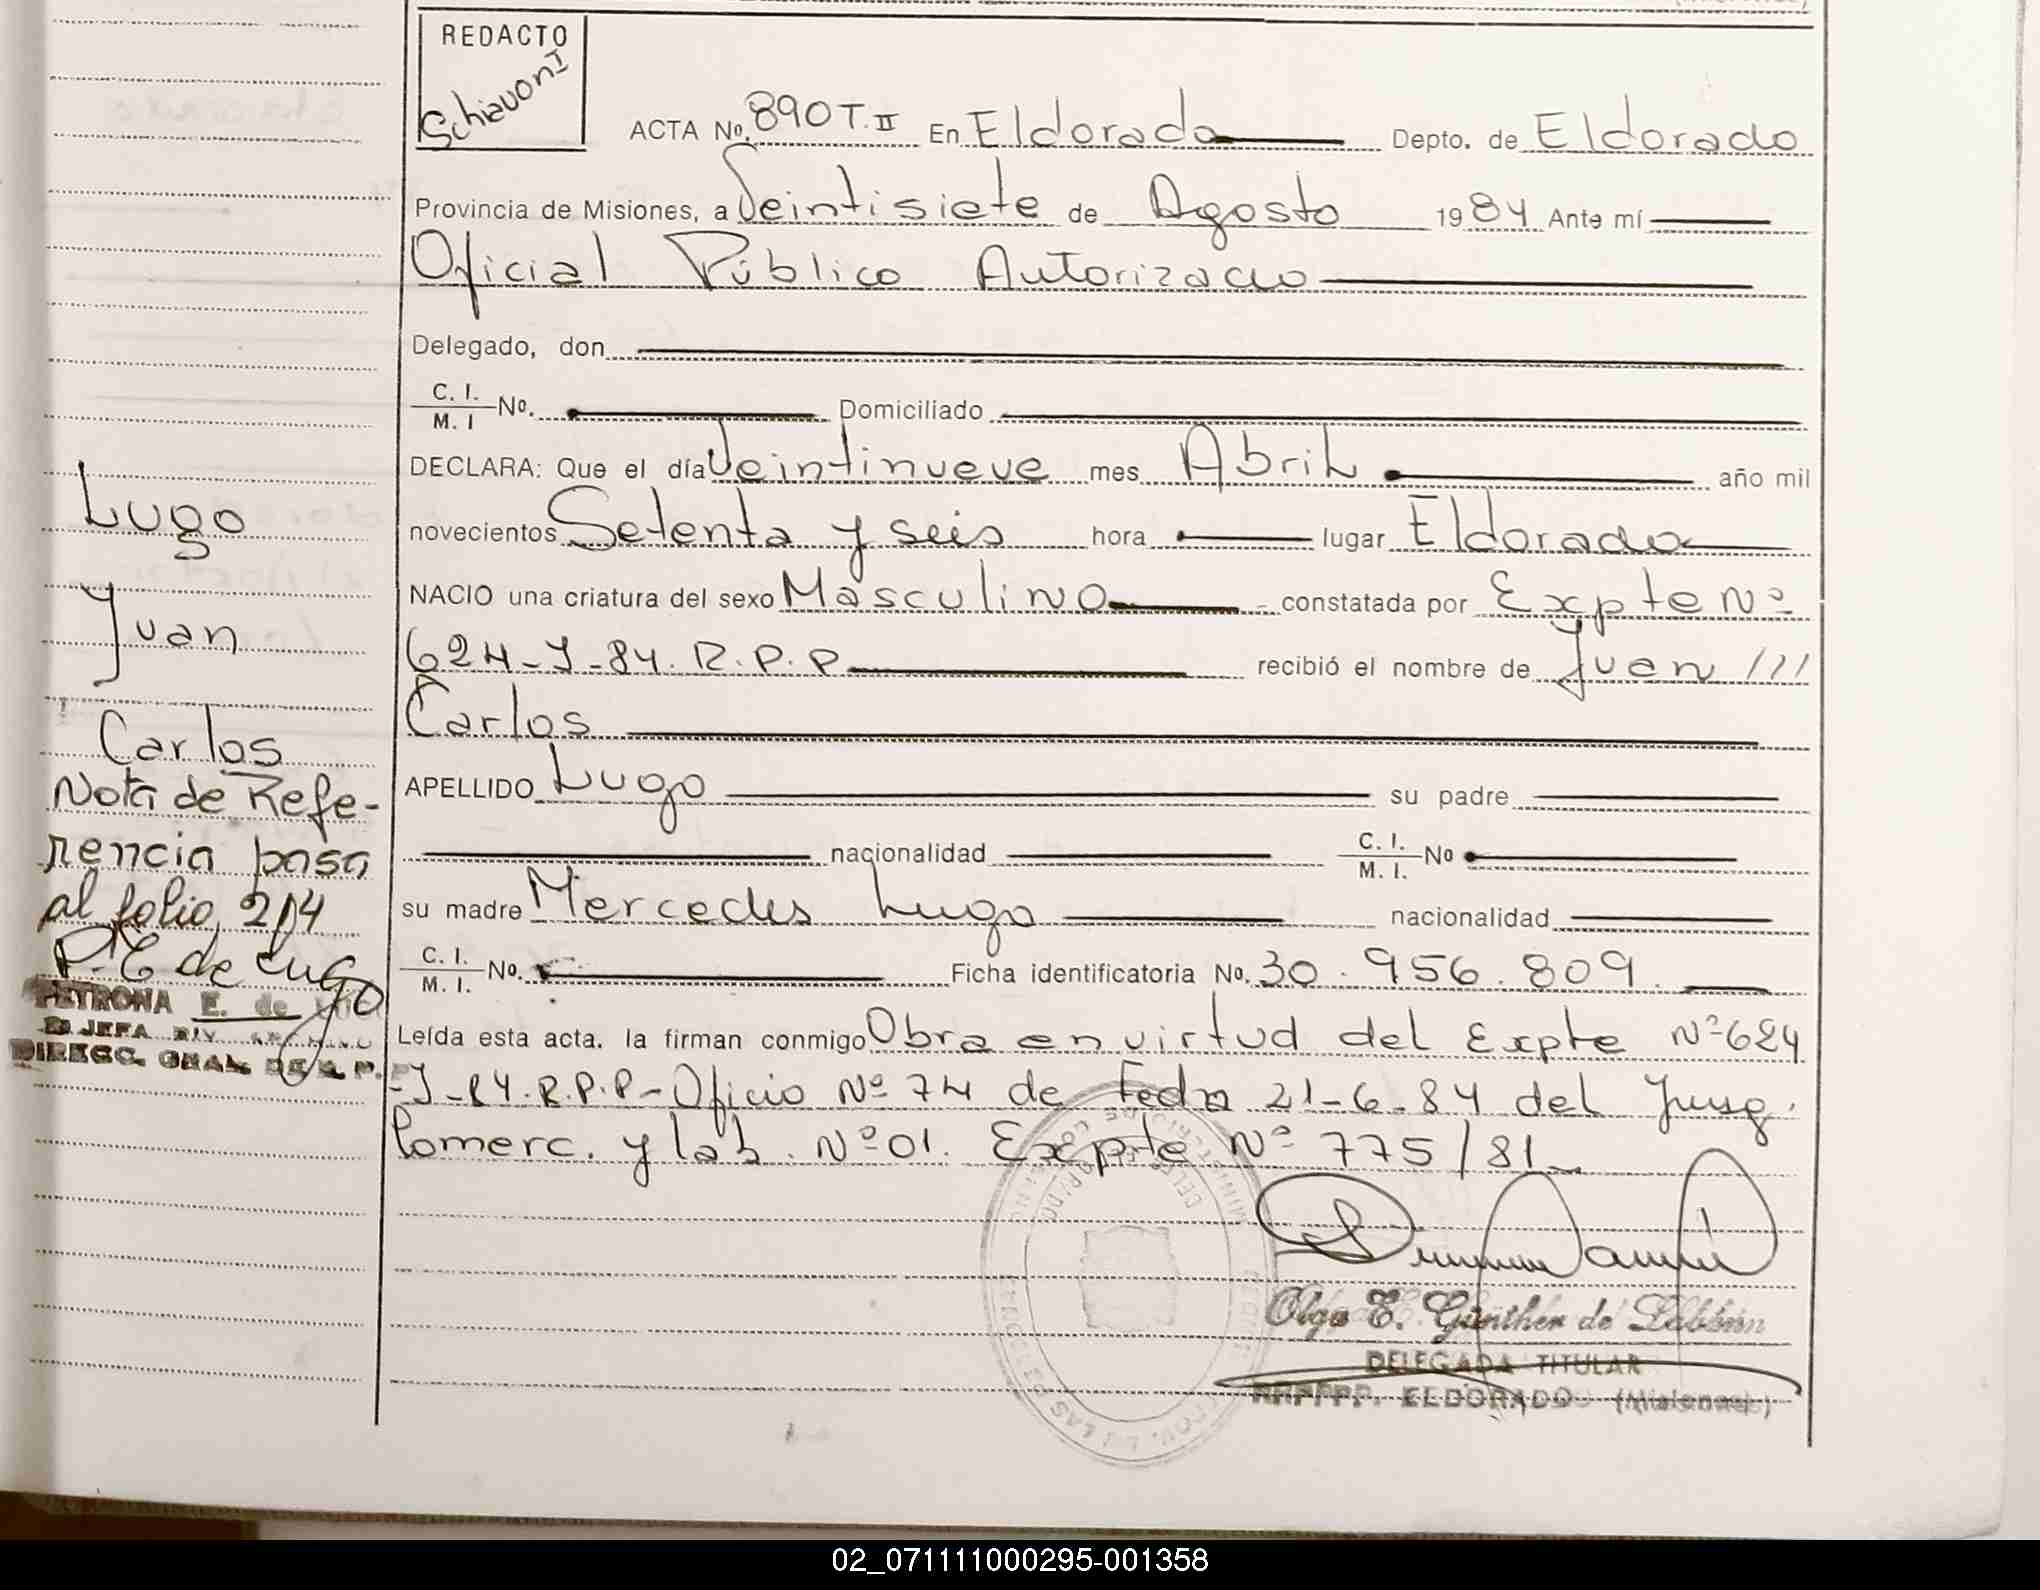 REDACTO
Schiavoni
ACTA No. 890 T. II En Eldorado Depto. de Eldorado
Provincia de Misiones, a Veintisiete de Agosto 1984 Ante mí
Oficial Público Autorizado
Delegado, don
C. I.
M. I No. Domiciliado
DECLARA: Que el día Veintinueve mes Abril año mil
novecientos Setenta y seis hora lugar Eldorado
NACIO una criatura del sexo Masculino constatada por Expte Nº
624-J-84. R.P.P recibió el nombre de Juan ///
Carlos
APELLIDO Lugo su padre
nacionalidad C. I.
M. I. No
su madre Mercedes Lugo nacionalidad
C. I.
M. I. No. Ficha identificatoria No. 30.956.809.
Leída esta acta. la firman conmigo Obra en virtud del Expte Nº 624
-J-84.R.P.P- Oficio Nº 74 de Fecha 21-6-84 del Juzg.
Comerc. y lab. Nº 01. Expte Nº 775/81
Olga E. Günther de
DELEGADA TITULAR
ELDORADO (Misiones)
Lugo
Juan
Carlos
Nota de Refe-
rencia pasa
al folio 214
P. E de Lugo
PETRONA E. de
JEFA DIV.
DIRECC. GRAL DE R. P.
02_071111000295-001358